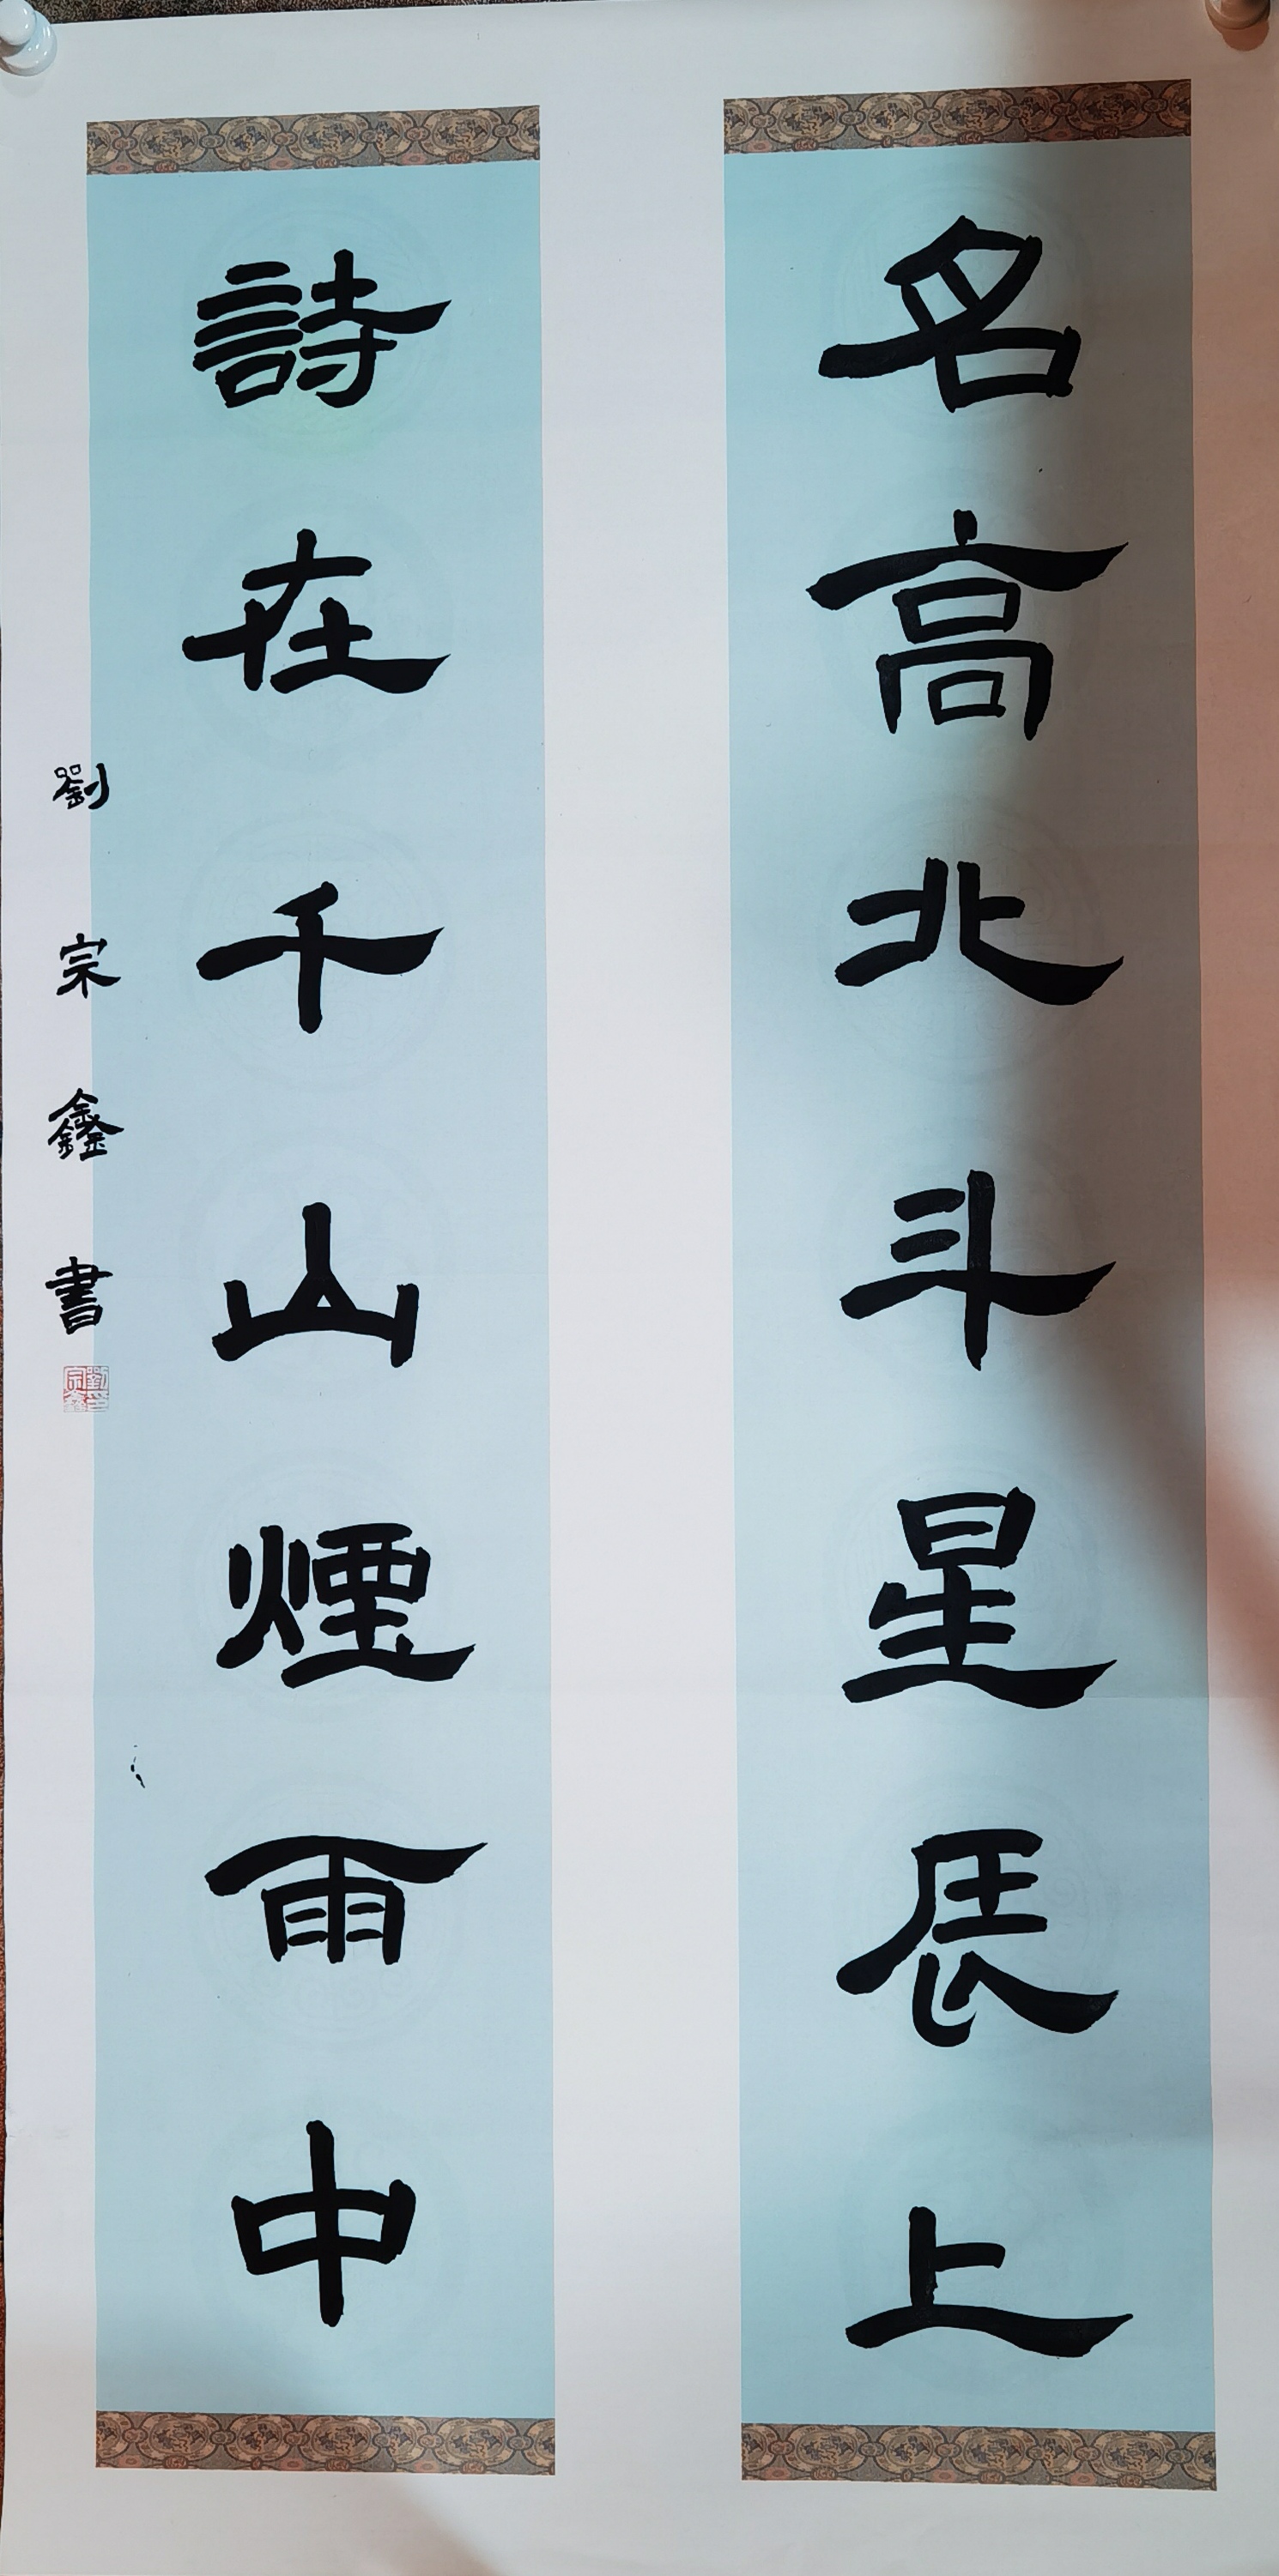 名高北斗星辰上
詩在千山煙雨中
劉宗鑫書
劉印宗鑫